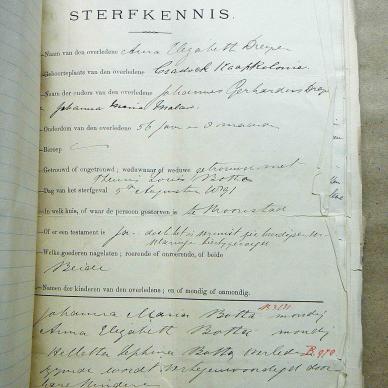 STERFKENNIS.
—Naam van den overledene Anna Elizabeth Dreyer
—Geboorteplaats van den overledene Cradock Kaapkolonie.
—Naam der ouders van den overledene Johannes Gerhardus Dreyer
Johanna Maria
—Ouderdom van den overledene 56 jaar 8 maanden
—Beroep
—Getrouwd of ongetrouwd; weduwnaar of weduwe getrouwd met
Theunis Louis Botha
—Dag van het sterfgeval 5de Augustus 1891
—In welk huis, of waar de persoon gestorven is te Kroonstad
—Of er een testament is Ja
—Welke goederen nagelaten; roerende of onroerende, of beide
Beide
—Namen der kinderen van den overledene; en of mondig of onmondig.
Johanna Maria Botha mondig
Anna Elizabeth Botha mondig
Helletta Sophina Botha overleden B.970
zynde wordt vertegenwoordigd door
hare kinderen